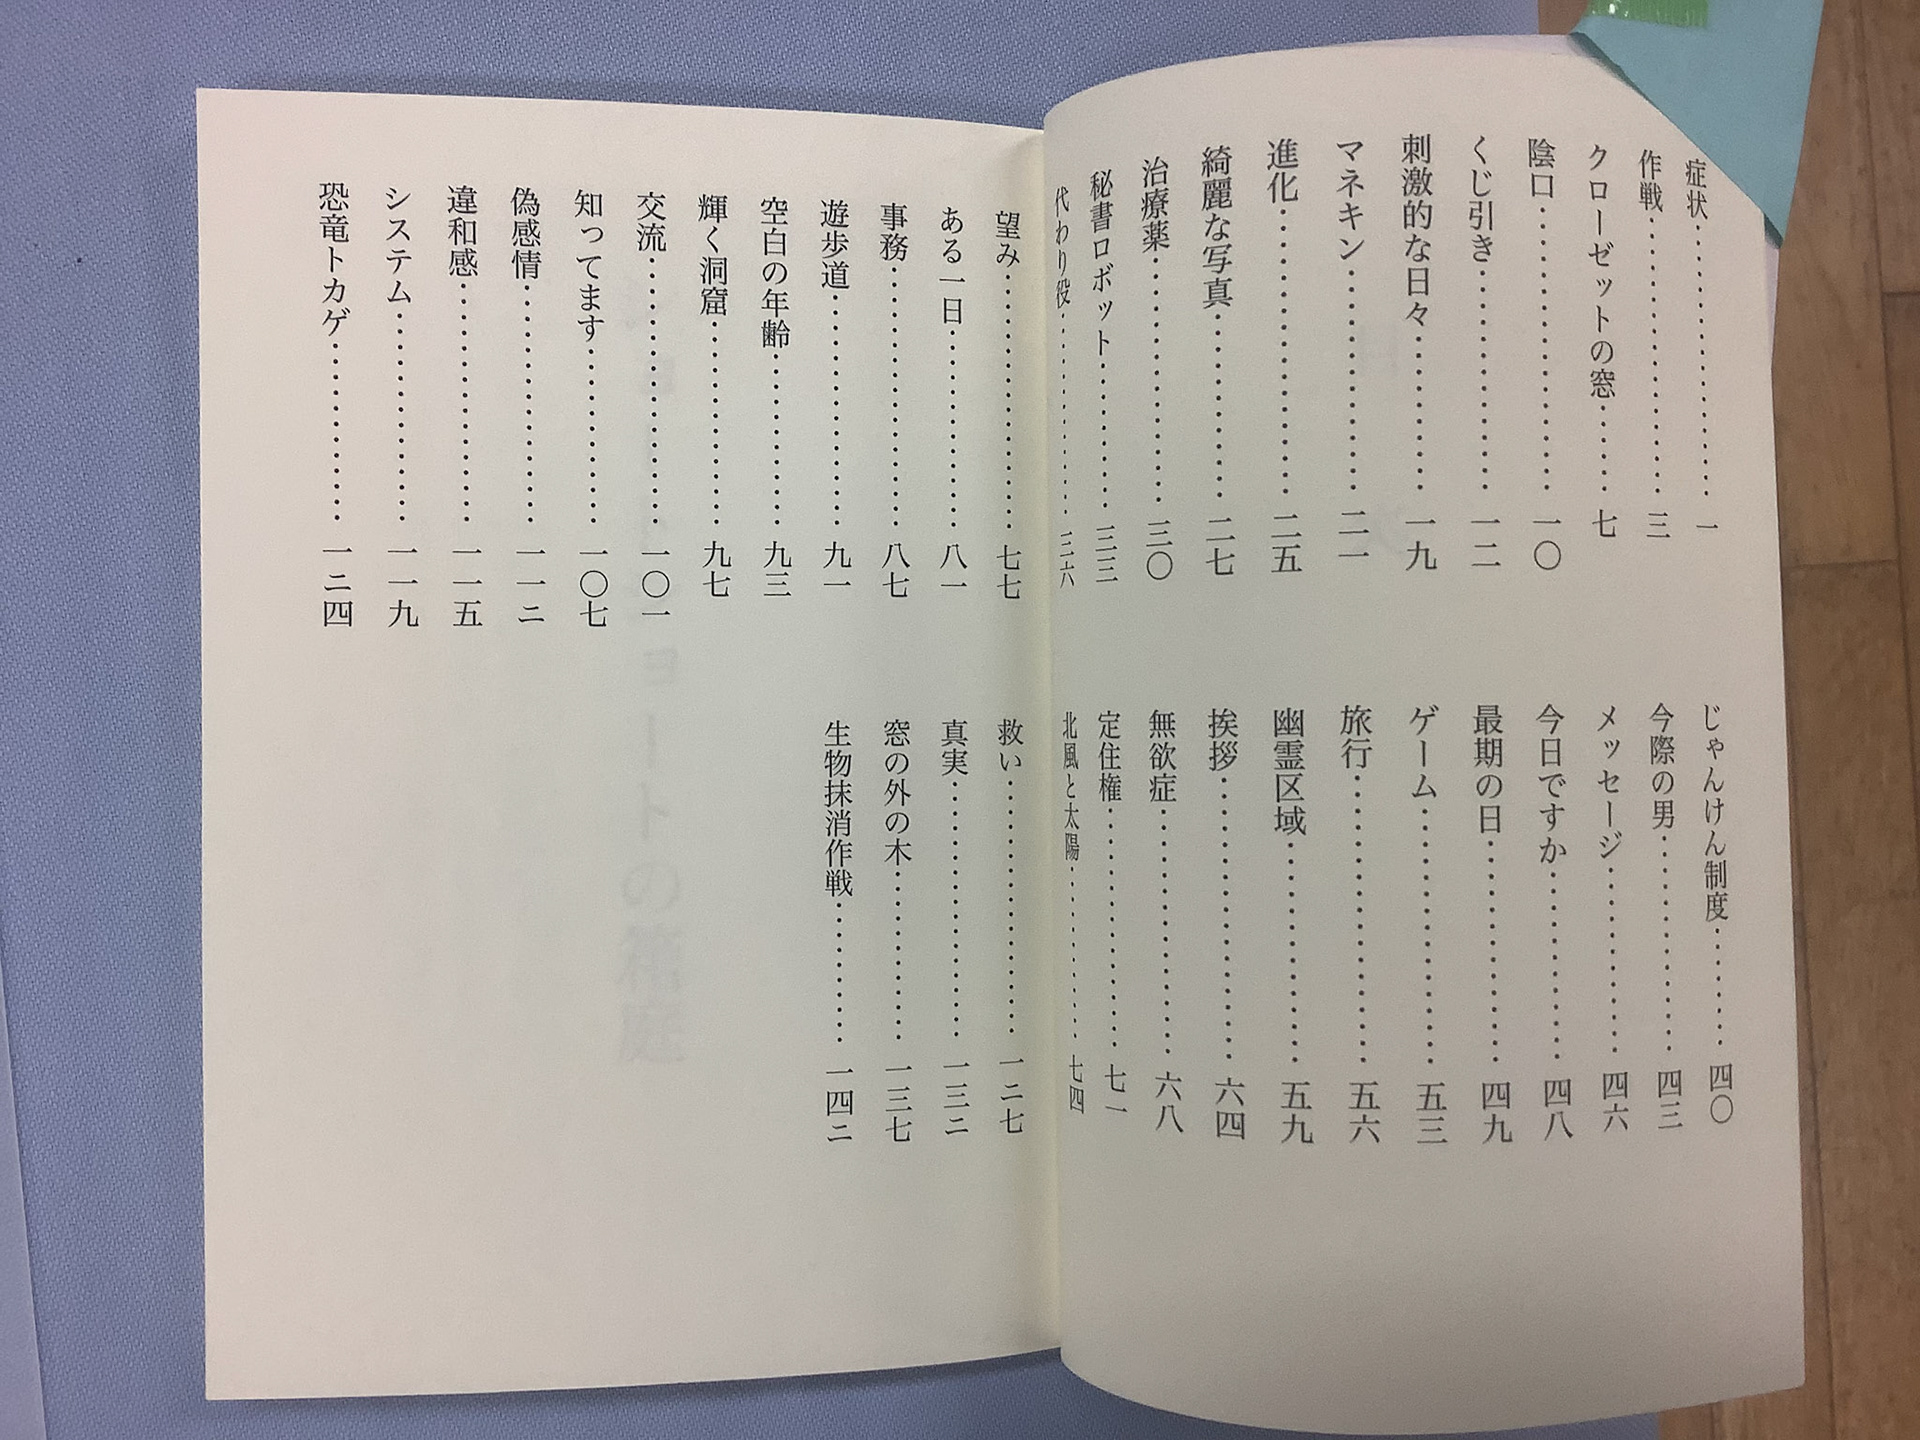 症状……………………一
作戦……………………三
クローゼットの窓……七
陰口……………………一〇
くじ引き………………一二
刺激的な日々…………一九
マネキン………………二一
進化……………………二五
綺麗な写真……………二七
治療薬…………………三〇
秘書ロボット…………三三
代わり役………………三六
じゃんけん制度………四〇
今際の男………………四三
メッセージ……………四六
今日ですか……………四八
最期の日………………四九
ゲーム…………………五三
旅行……………………五六
幽霊区域………………五九
挨拶……………………六四
無欲症…………………六八
定住権…………………七一
北風と太陽……………七四
望み……………………七七
ある一日………………八一
事務……………………八七
遊歩道…………………九一
空白の年齢……………九三
輝く洞窟………………九七
交流……………………一〇一
知ってます……………一〇七
偽感情…………………一一二
違和感…………………一一五
システム………………一一九
恐竜トカゲ……………一二四
救い……………………一二七
真実……………………一三二
窓の外の木……………一三七
生物抹消作戦…………一四二